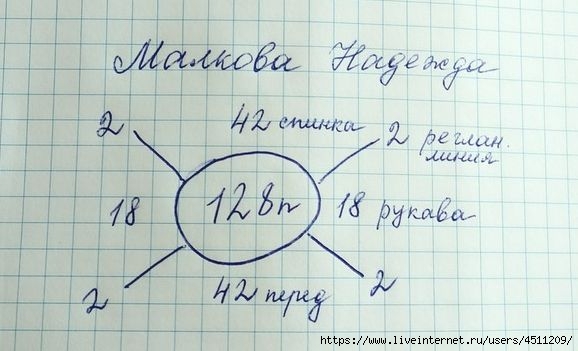 Малкова Надежда
2 42 спинка 2 реглан.
линия
18 128п 18 рукава
2 42 перед 2
https://www.liveinternet.ru/users/4511209/